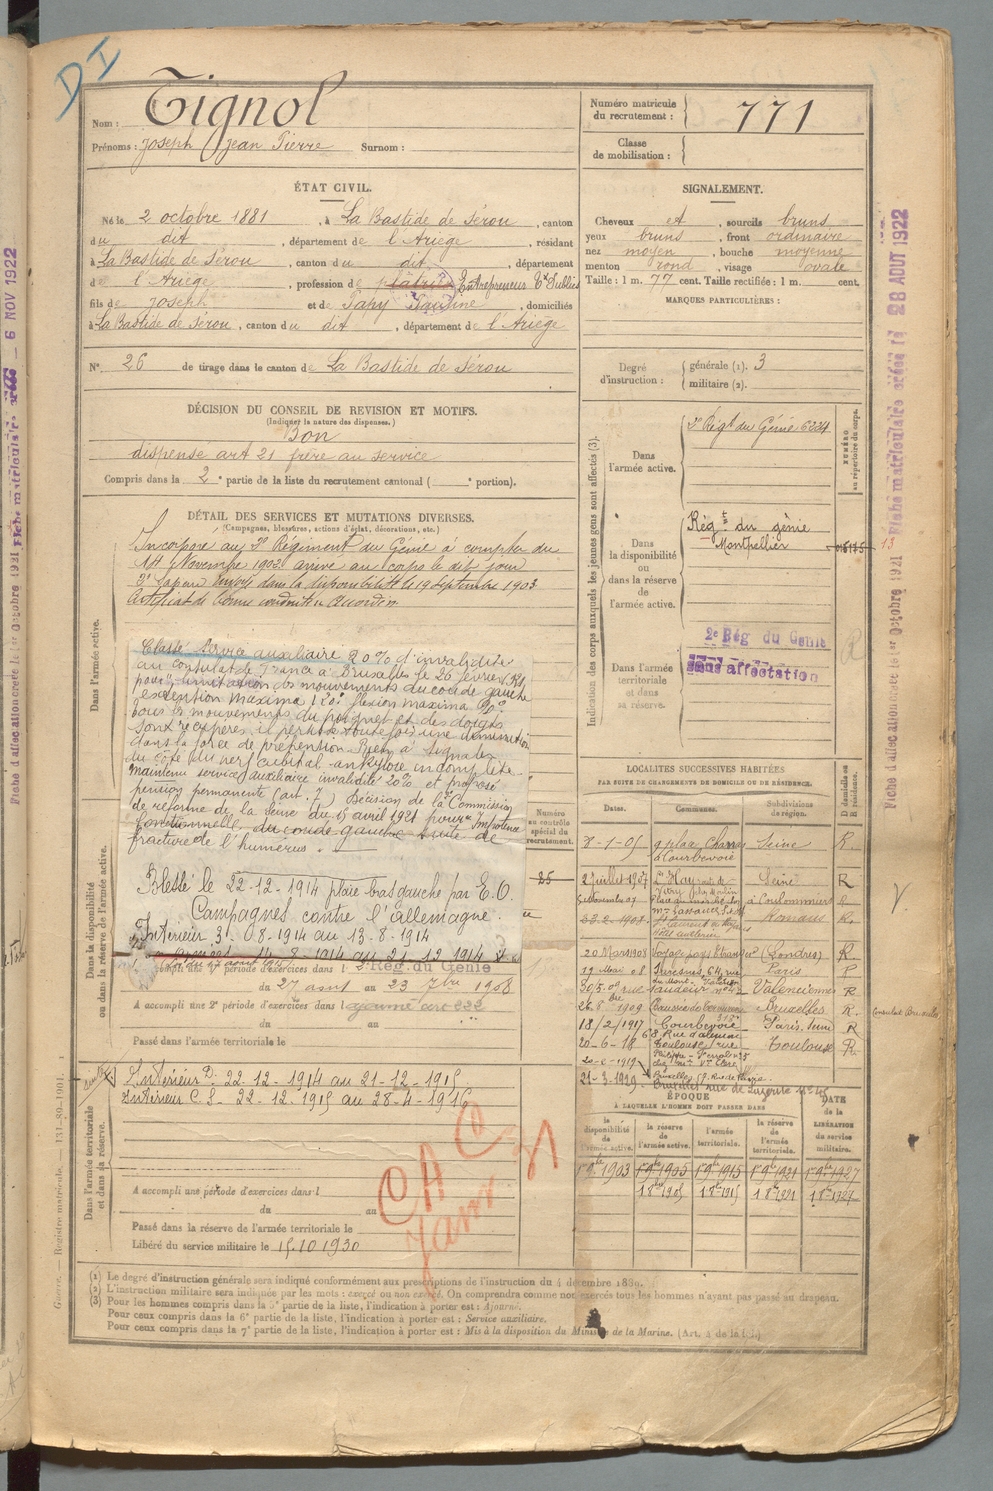 DI
Nom : Tignol
Prénoms : Joseph Jean Pierre Surnom :
Numéro matricule du recrutement : 771
Classe de mobilisation :
ÉTAT CIVIL.
Né le 2 octobre 1881, à La Bastide de Sérou, canton
du dit, département de l'Ariège, résidant
à La Bastide de Sérou, canton du dit, département
de l'Ariège, profession de Entrepreneur Tx Publics
fils de Joseph et de Papy, domiciliés
à La Bastide de Sérou, canton du dit, département de l'Ariège
N° 26 de tirage dans le canton de La Bastide de Sérou
SIGNALEMENT.
Cheveux et, sourcils bruns
yeux bruns, front ordinaire
nez moyen, bouche moyenne
menton rond, visage ovale
Taille : 1 m. 77 cent. Taille rectifiée : 1 m. cent.
MARQUES PARTICULIÈRES :
Degré d'instruction : générale (1). 3
militaire (2).
DÉCISION DU CONSEIL DE REVISION ET MOTIFS.
(Indiquer la nature des dispenses.)
Bon
dispense art 21 frère au service
Compris dans la 2e partie de la liste du recrutement cantonal ( e portion).
DÉTAIL DES SERVICES ET MUTATIONS DIVERSES.
(Campagnes, blessures, actions d'éclat, décorations, etc.)
Dans l'armée active.
Incorporé au 2e Régiment du Génie à compter du
14 Novembre 1902 arrivé au corps le dit jour
2e Sapeur Envoyé dans la disponibilité le 19 Septembre 1903
Certificat de bonne conduite Accordé
Classé service auxiliaire 20% d'invalidité
au consulat de France à Bruxelles le 26 février
pour limitation des mouvements du coude gauche
extension maxima flexion maxima
tous les mouvements du poignet et des doigts
sont récupérés, il persiste toutefois une diminution
dans la force de préhension. Rien à signaler
du côté du nerf cubital - ankylose incomplète
maintenu service auxiliaire invalidité 20% et proposé
pension permanente (art. 7) Décision de la Commission
de réforme de la Seine du 15 avril 1921 pour Impotence
fonctionnelle du coude gauche suite de
fracture de l'humérus.
Blessé le 22-12-1914 plaie bras gauche par E.O
Campagnes contre l'allemagne.
Intérieur 3-08-1914 au 13-8-1914
14-8-1914 au 21-12-1914
Dans la disponibilité ou dans la réserve de l'armée active.
A accompli une 1e période d'exercices dans l 2e Rég. du Génie
du 27 août au 23 7bre 1908
A accompli une 2e période d'exercices dans l
du au
Passé dans l'armée territoriale le
Numéro au contrôle spécial du recrutement.
25
Dans l'armée territoriale et dans sa réserve.
Intérieur D. 22-12-1914 au 21-12-1915
Intérieur C S- 22-12-1915 au 28-4-1916
A accompli une période d'exercices dans l
du au
Passé dans la réserve de l'armée territoriale le
Libéré du service militaire le 15.10 1930
CAC
Janv. 31
Indication des corps auxquels les jeunes gens sont affectés (3).
NUMÉRO au répertoire du corps.
Dans l'armée active.
2e Régt du Génie 6224
Dans la disponibilité ou dans la réserve de l'armée active.
Régt du génie
Montpellier
13
Dans l'armée territoriale et dans sa réserve.
2e Rég du Génie
Sans affectation
LOCALITÉS SUCCESSIVES HABITÉES
PAR SUITE DE CHANGEMENTS DE DOMICILE OU DE RÉSIDENCE.
Dates. Communes. Subdivisions de région. D domicile ou R résidence.
8-1-05 9 place Charras à Courbevoie Seine R.
2 juillet 1907 Seine R
5 Novembre 07 à Coulommiers R
1908 Romans R.
20 Mars 1908 Voyage pays Etranger (Londres) R.
11 Mai 08 Suresnes, 64, rue du Mont-Valérien Paris R
30/5.09 rue N° 42 Valenciennes R
26 8bre 1909 Bruxelles R. Consulat Bruxelles
18/2/1917 Courbevoie 68 Rue Paris Seine R
20-6-18 Toulouse rue Toulouse R.
20-2-1919
21-3-1929 Bruxelles
ÉPOQUE
À LAQUELLE L'HOMME DOIT PASSER DANS
la disponibilité de l'armée active. la réserve de l'armée active. l'armée territoriale. la réserve de l'armée territoriale. DATE de la LIBÉRATION du service militaire.
1er 9bre 1903 1er 9bre 1905 1er 9bre 1915 1er 9bre 1921 1er 9bre 1927
1 8bre 1905 1 8bre 1915 1 8bre 1921 1 8bre 1927
(1) Le degré d'instruction générale sera indiqué conformément aux prescriptions de l'instruction du 4 décembre 1889.
(2) L'instruction militaire sera indiquée par les mots : exercé ou non exercé. On comprendra comme non exercés tous les hommes n'ayant pas passé au drapeau.
(3) Pour les hommes compris dans la 5e partie de la liste, l'indication à porter est : Ajourné.
Pour ceux compris dans la 6e partie de la liste, l'indication à porter est : Service auxiliaire.
Pour ceux compris dans la 7e partie de la liste, l'indication à porter est : Mis à la disposition du Ministre de la Marine. (Art. 4 de la loi.)
Guerre. — Registre matricule. — 131-89-1901.
Fiche d'affectation créée le 1er Octobre 1921 Fiche matriculaire créée le 28 AOUT 1922
Fiche d'affectation créée le 1er Octobre 1921 Fiche matriculaire créée le — 6 NOV 1922